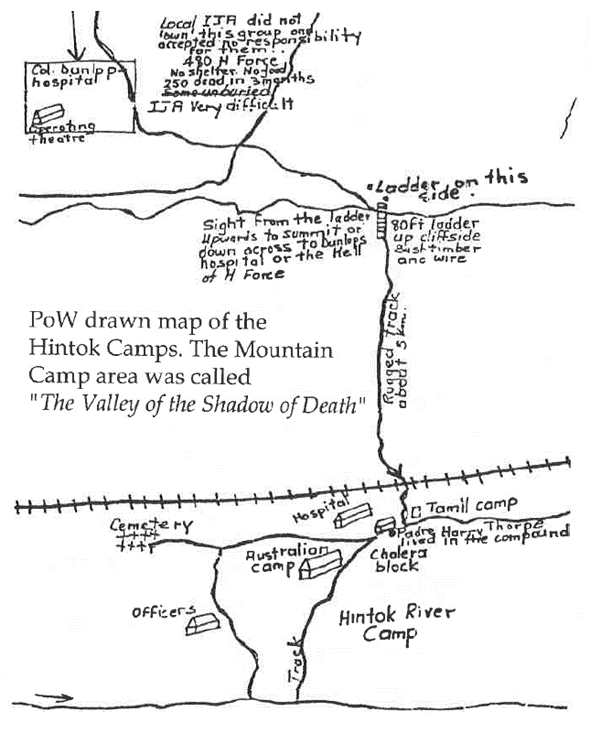 Local IJA did not
own this group and
accepted no responsibility
for them..
480 H Force
No shelter. No food
250 dead in 3 months
Some unburied
IJA Very difficult
Col. Dunlop
hospital
Operating
theatre
Ladder on this
side
Sight from the ladder
upwards to summit or
down across to Dunlops
hospital or the Hell
of H Force
80ft ladder
up cliffside
bush timber
and wire
Rugged track
about 5 km.
PoW drawn map of the
Hintok Camps. The Mountain
Camp area was called
"The Valley of the Shadow of Death"
Hospital
Tamil camp
Cemetery
Padre Harry Thorpe
lived in the compound
Cholera
block
Australian
camp
Officers
Hintok River
Camp
Track